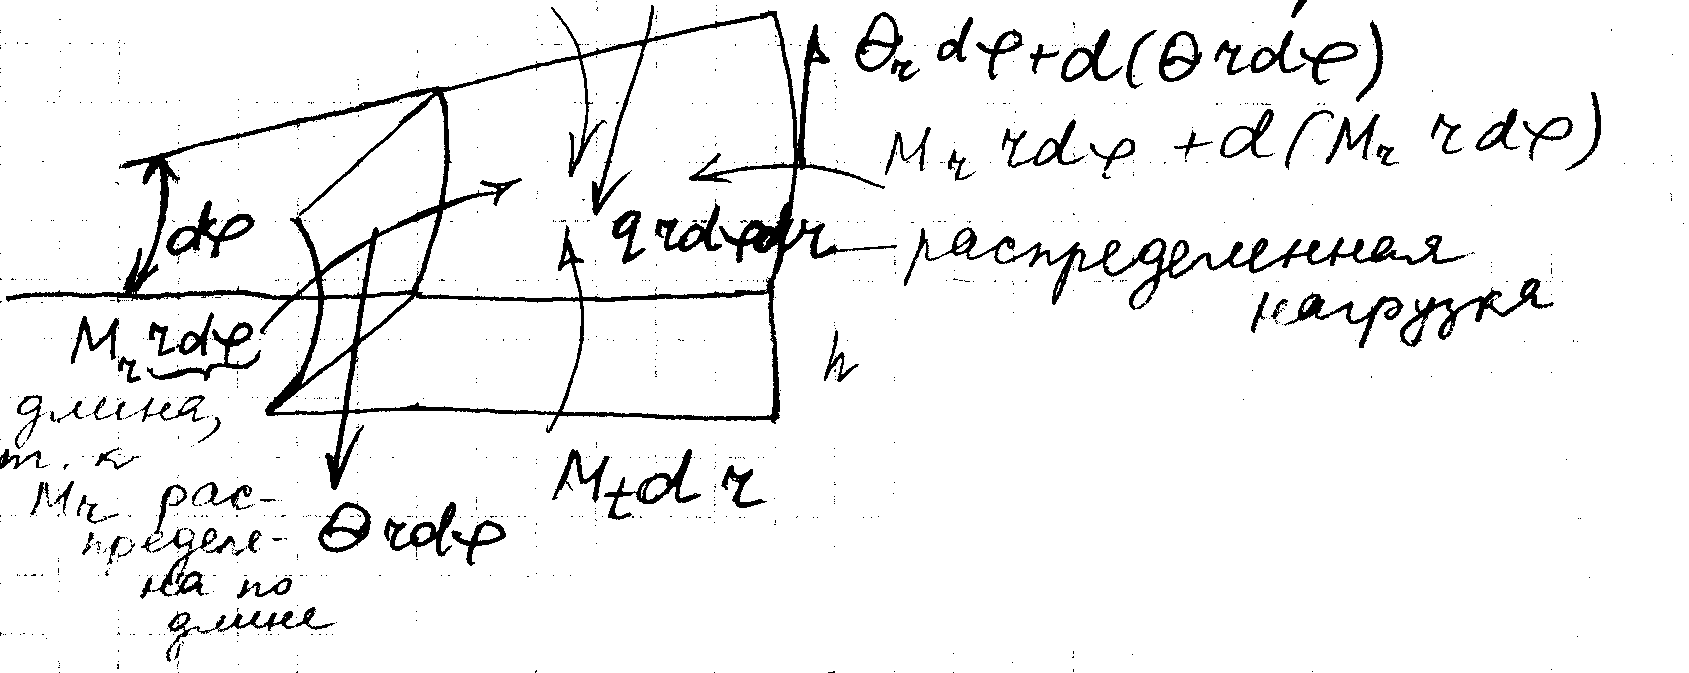 θr dφ + d(θ r dφ)
Mr r dφ + d(Mr r dφ)
dφ
q r dφ dr — распределенная
нагрузка
Mr r dφ
h
длина,
т. к
Mt d r
Mr рас-
пределе-
θ r dφ
на по
длине